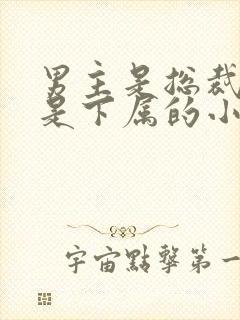 男主是总裁
是下属的小
宇宙點擊第一